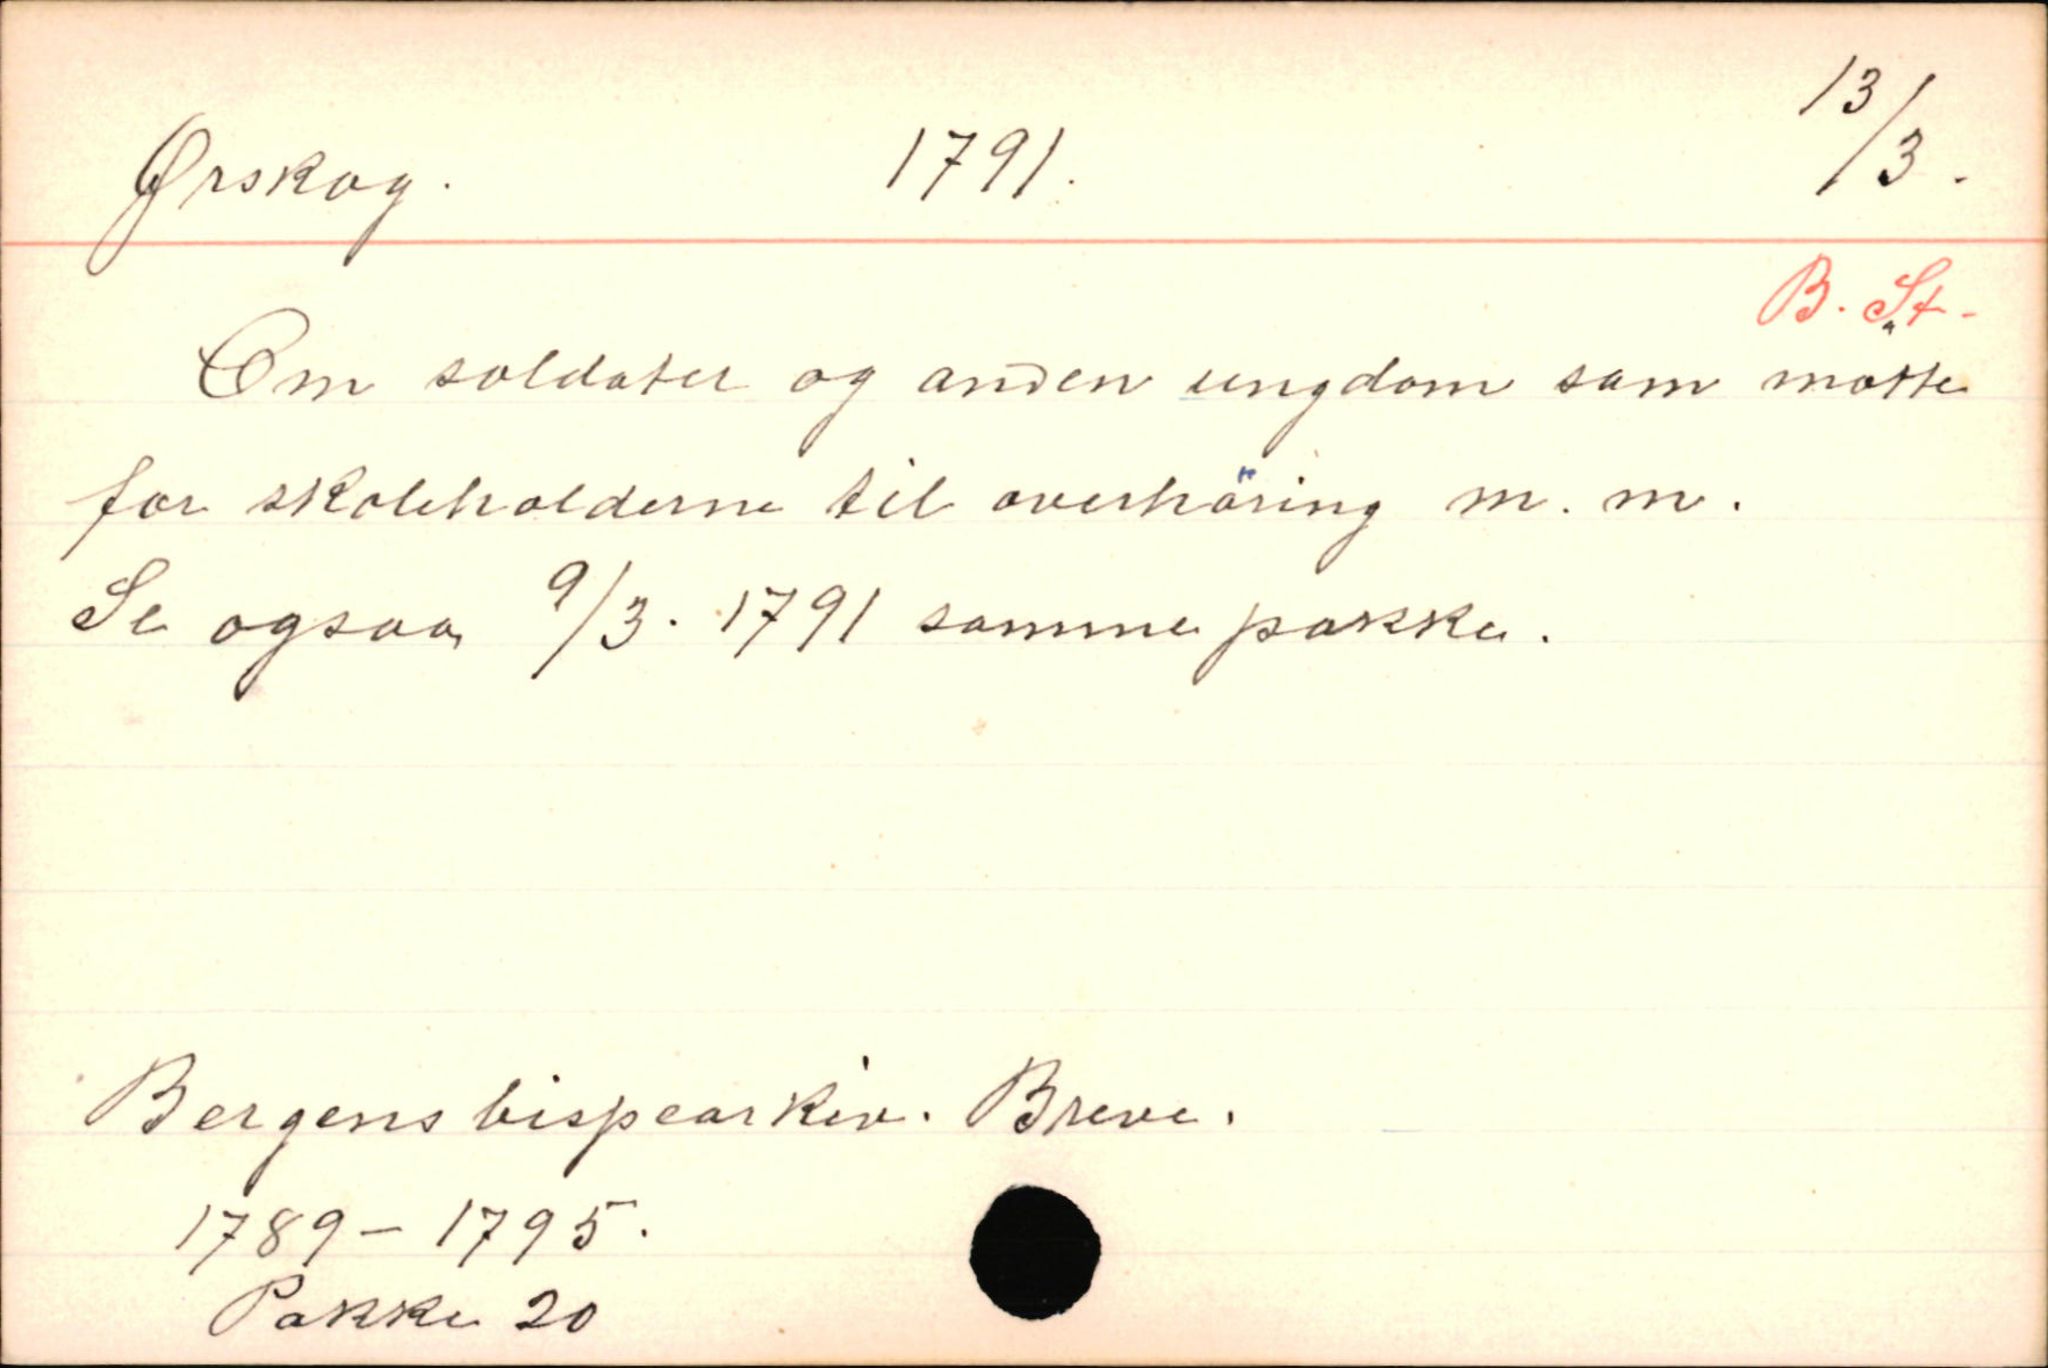 Ørskog. 1791. 13/3.
B. St.
Om soldater og anden ungdom som møtte
for skoleholderne til overhöring m. m.
Se ogsaa 9/3. 1791 samme pakke.
Bergens bispearkiv. Breve.
1789 - 1795.
Pakke 20